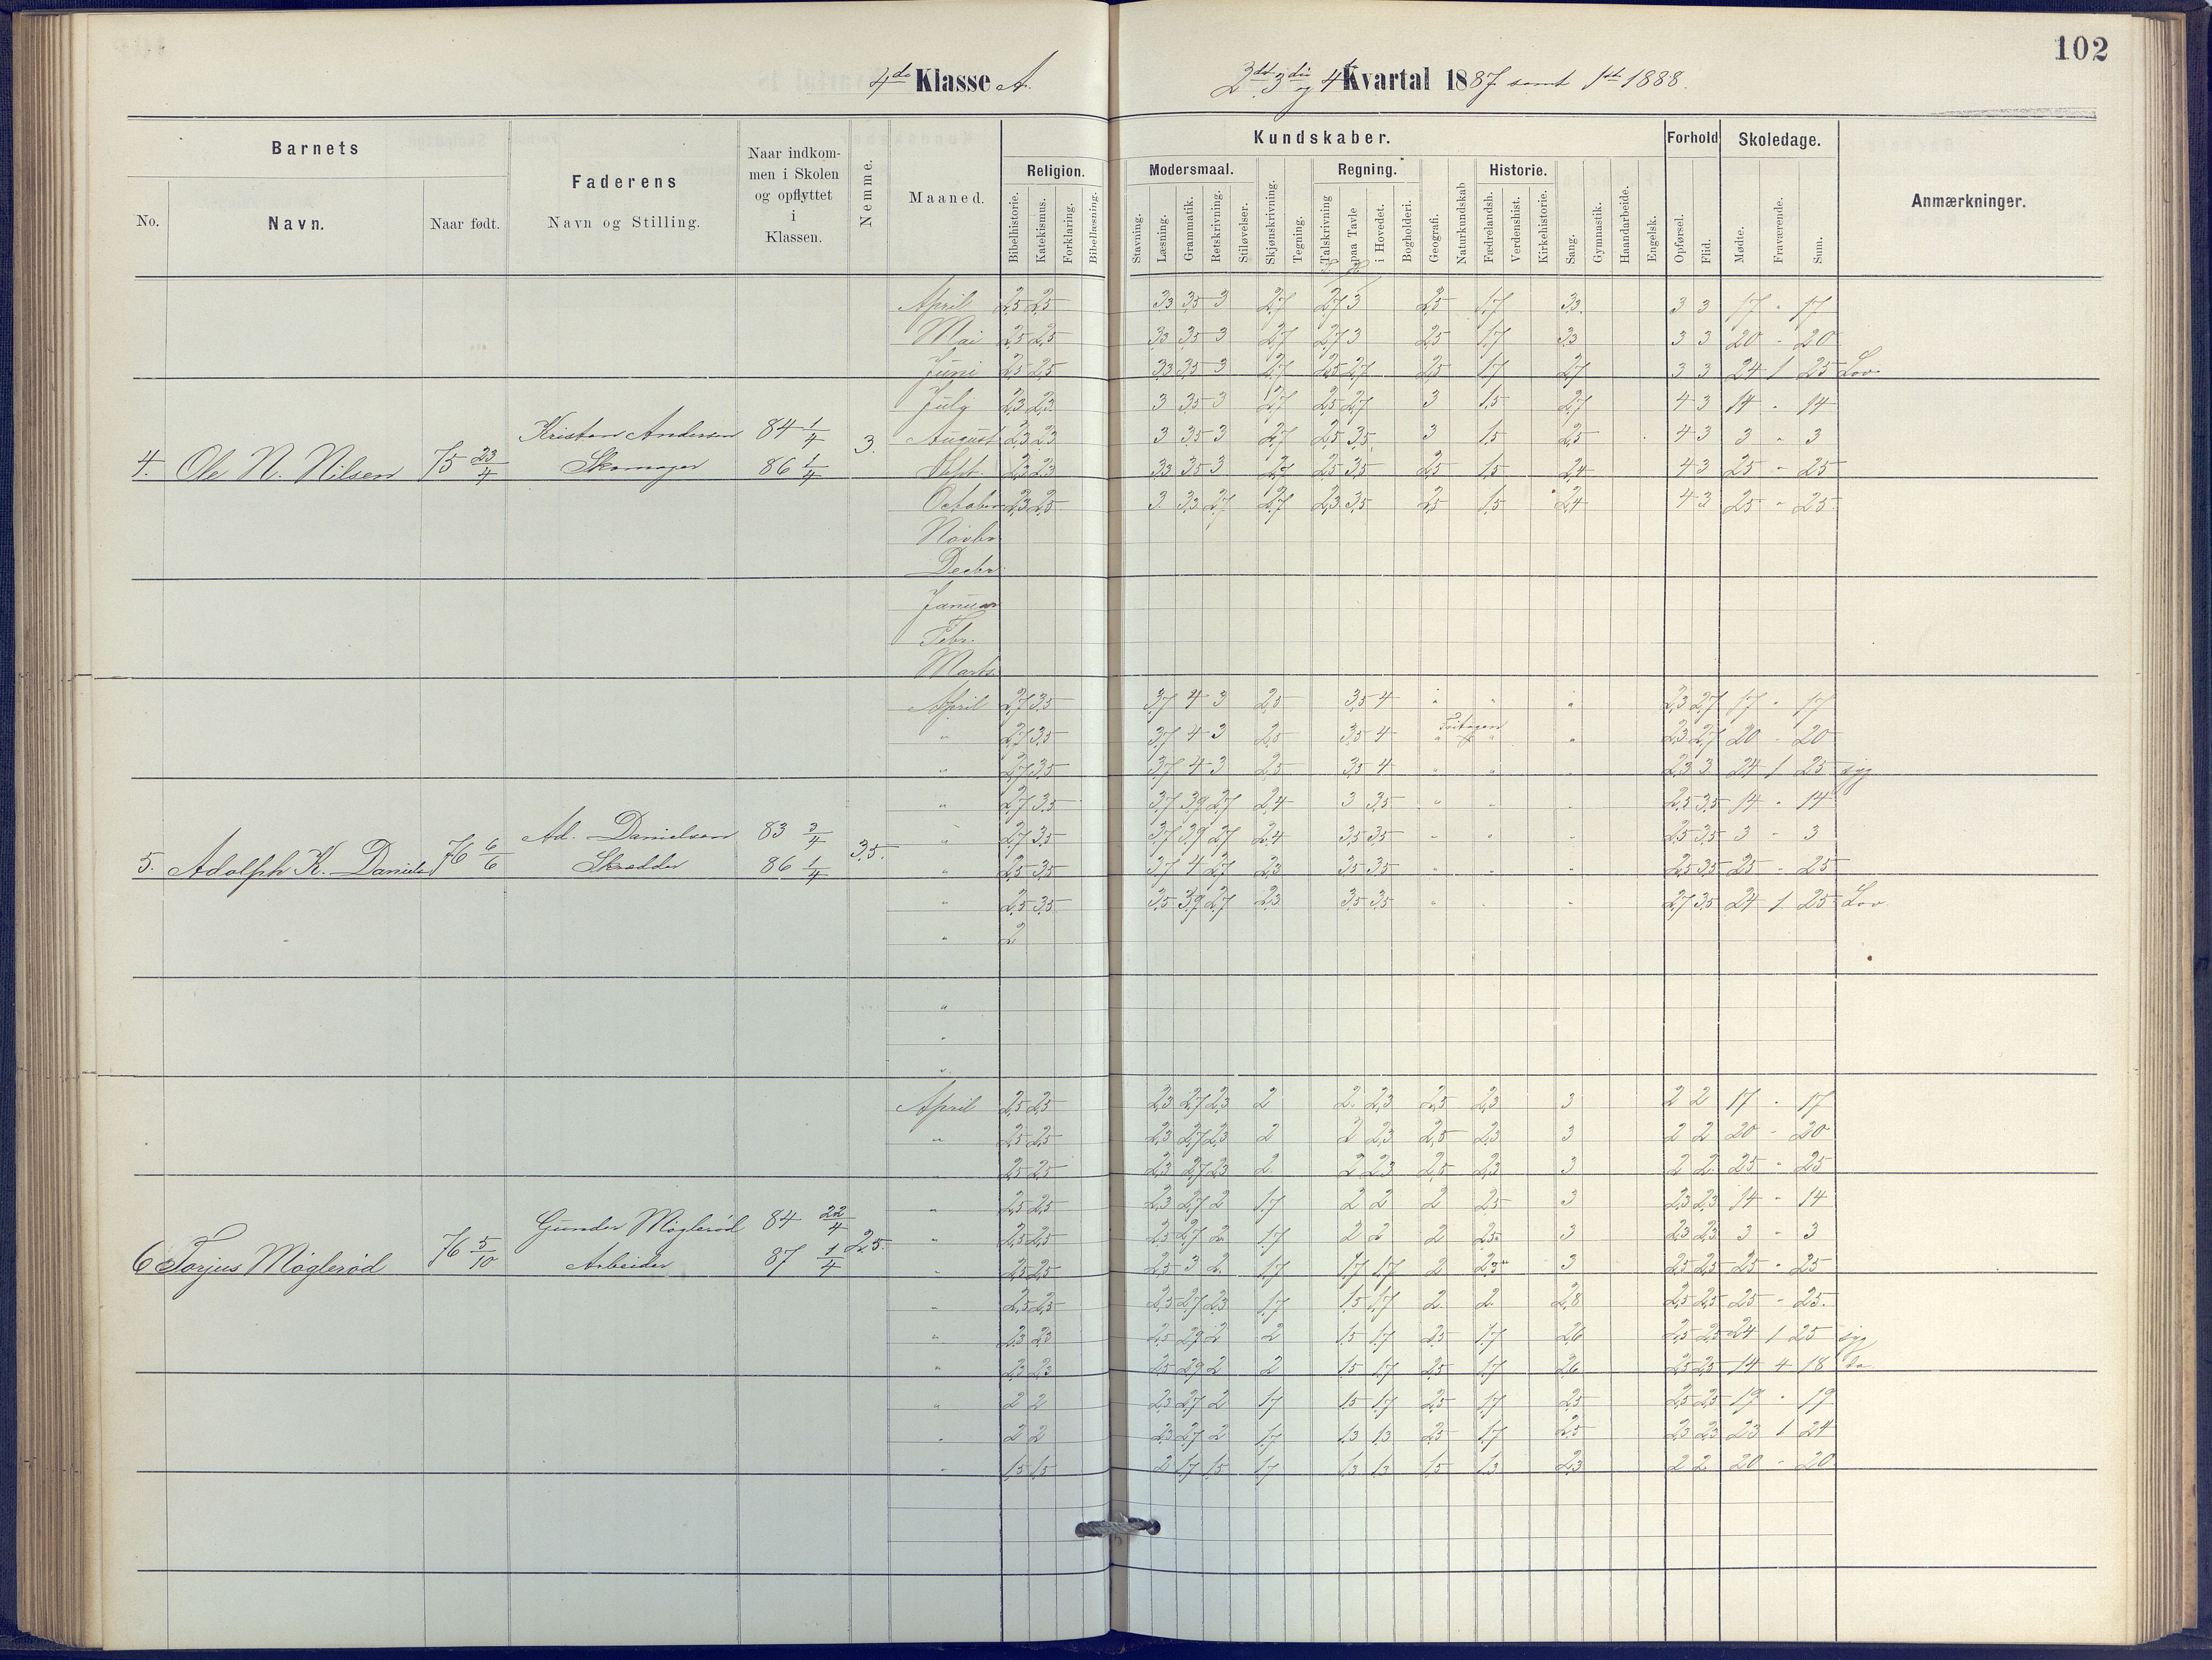 102
4de Klasse A.
2det 3die og 4de Kvartal 1887 samt 1ste 1888.
Barnets
Faderens
Naar indkommen i Skolen og opflyttet i Klassen.
Nemme.
Maaned.
Kundskaber.
Forhold
Skoledage.
Anmærkninger.
No.
Navn.
Naar født.
Navn og Stilling.
Religion.
Modersmaal.
Regning.
Historie.
Bibelhistorie.
Katekismus.
Forklaring.
Bibellæsning.
Stavning.
Læsning.
Grammatik.
Retskrivning.
Stiløvelser.
Skjønskrivning.
Tegning.
Talskrivning
paa Tavle
i Hovedet.
Bogholderi.
Geografi.
Naturkundskab
Fædrelandsh.
Verdenshist.
Kirkehistorie.
Sang.
Gymnastik.
Haandarbeide.
Engelsk.
Opførsel.
Flid.
Mødte.
Fraværende.
Sum.
4. Ole N. Nilsen 75 23/4
Kristen Andersen
Skomager
84 1/4
86 1/4
3.
April 2,5 2,5 3,3 3,5 3 2,7 2,7 3 2,5 1,7 3,3. 3 3 17 " 17
Mai 2,5 2,5 3,3 3,5 3 2,7 2,7 3 2,5 1,7 3,3 3 3 20 - 20
Juni 2,5 2,5 3,3 3,5 3 2,7 2,5 2,7 2,5 1,7 2,7 3 3 24 1 25 Lov
July 2,3 2,3 3 3,5 3 2,7 2,5 2,7 3 1,5 2,7 4 3 14 " 14
August 2,3 2,3 3 3,5 3 2,7 2,5 3,5 3 1,5 2,5 4 3 3 " 3
Sept. 2,3 2,3 3,3 3,5 3 2,7 2,5 3,5 2,5 1,5 2,4 4 3 25 " 25
October 2,3 2,5 3 3,3 2,7 2,7 2,3 3,5 2,5 1,5 2,4 4 3 25 " 25
Novbr
Decbr
Januar
Febr.
Marts
5. Adolph K. Daniels 76 6/6
Ad. Danielsen
Skrædder
83 3/4
86 1/4
3,5.
April 2,7 3,5 3,7 4 3 2,5 3,5 4 " " " 2,3 2,7 17 " 17
" 2,7 3,5 3,7 4 3 2,5 3,5 4 " " " 2,3 2,7 20 - 20
" 2,7 3,5 3,7 4 3 2,5 3,5 4 " " " 2,3 3 24 1 25 syg
" 2,7 3,5 3,7 3,9 2,7 2,4 3 3,5 " " " 2,5 3,5 14 " 14
" 2,7 3,5 3,7 3,9 2,7 2,4 3,5 3,5 " " " 2,5 3,5 3 - 3
" 2,5 3,5 3,7 4 2,7 2,3 3,5 3,5 " " " 2,5 3,5 25 - 25
" 2,5 3,5 3,5 3,9 2,7 2,3 3,5 3,5 " " " 2,7 3,5 24 1 25 Lov
" 2
"
"
"
6 Torjus Møglerød 76 5/10
Gunder Møglerød
Arbeider
84 22/4
87 1/4
2,5.
April 2,5 2,5 2,3 2,7 2,3 2 2 2,3 2,5 2,3 3 2 2 17 " 17
" 2,5 2,5 2,3 2,7 2,3 2 2 2,3 2,5 2,3 3 2 2 20 - 20
" 2,5 2,5 2,3 2,7 2,3 2 2 2,3 2,5 2,3 3 2 2 25 " 25
" 2,5 2,5 2,3 2,7 2 1,7 2 2 2 2,5 3 2,3 2,3 14 - 14
" 2,5 2,5 2,5 2,7 2 1,7 2 2 2 2,5 3 2,3 2,3 3 - 3
" 2,5 2,5 2,5 3 2 1,7 1,7 1,7 2 2,3 3 2,5 2,5 25 " 25
" 2,5 2,5 2,5 2,7 2,3 1,7 1,5 1,7 2 2 2,8 2,5 2,5 25 - 25.
" 2,3 2,3 2,5 2,9 2 2 1,5 1,7 2,5 1,7 2,6 2,5 2,5 24 1 25 syg
" 2,3 2,3 2,5 2,9 2 2 1,5 1,7 2,5 1,7 2,6 2,5 2,5 14 4 18 do
" 2 2 2,3 2,7 2 1,7 1,5 1,7 2,5 1,7 2,5 2,5 2,5 19 " 19
" 2 2 2,3 2,7 2 1,7 1,3 1,3 2,5 1,7 2,5 2,3 2,3 23 1 24
" 1,5 1,5 2 1,7 1,5 1,7 1,3 1,3 1,5 1,3 2,3 2 2 20 - 20